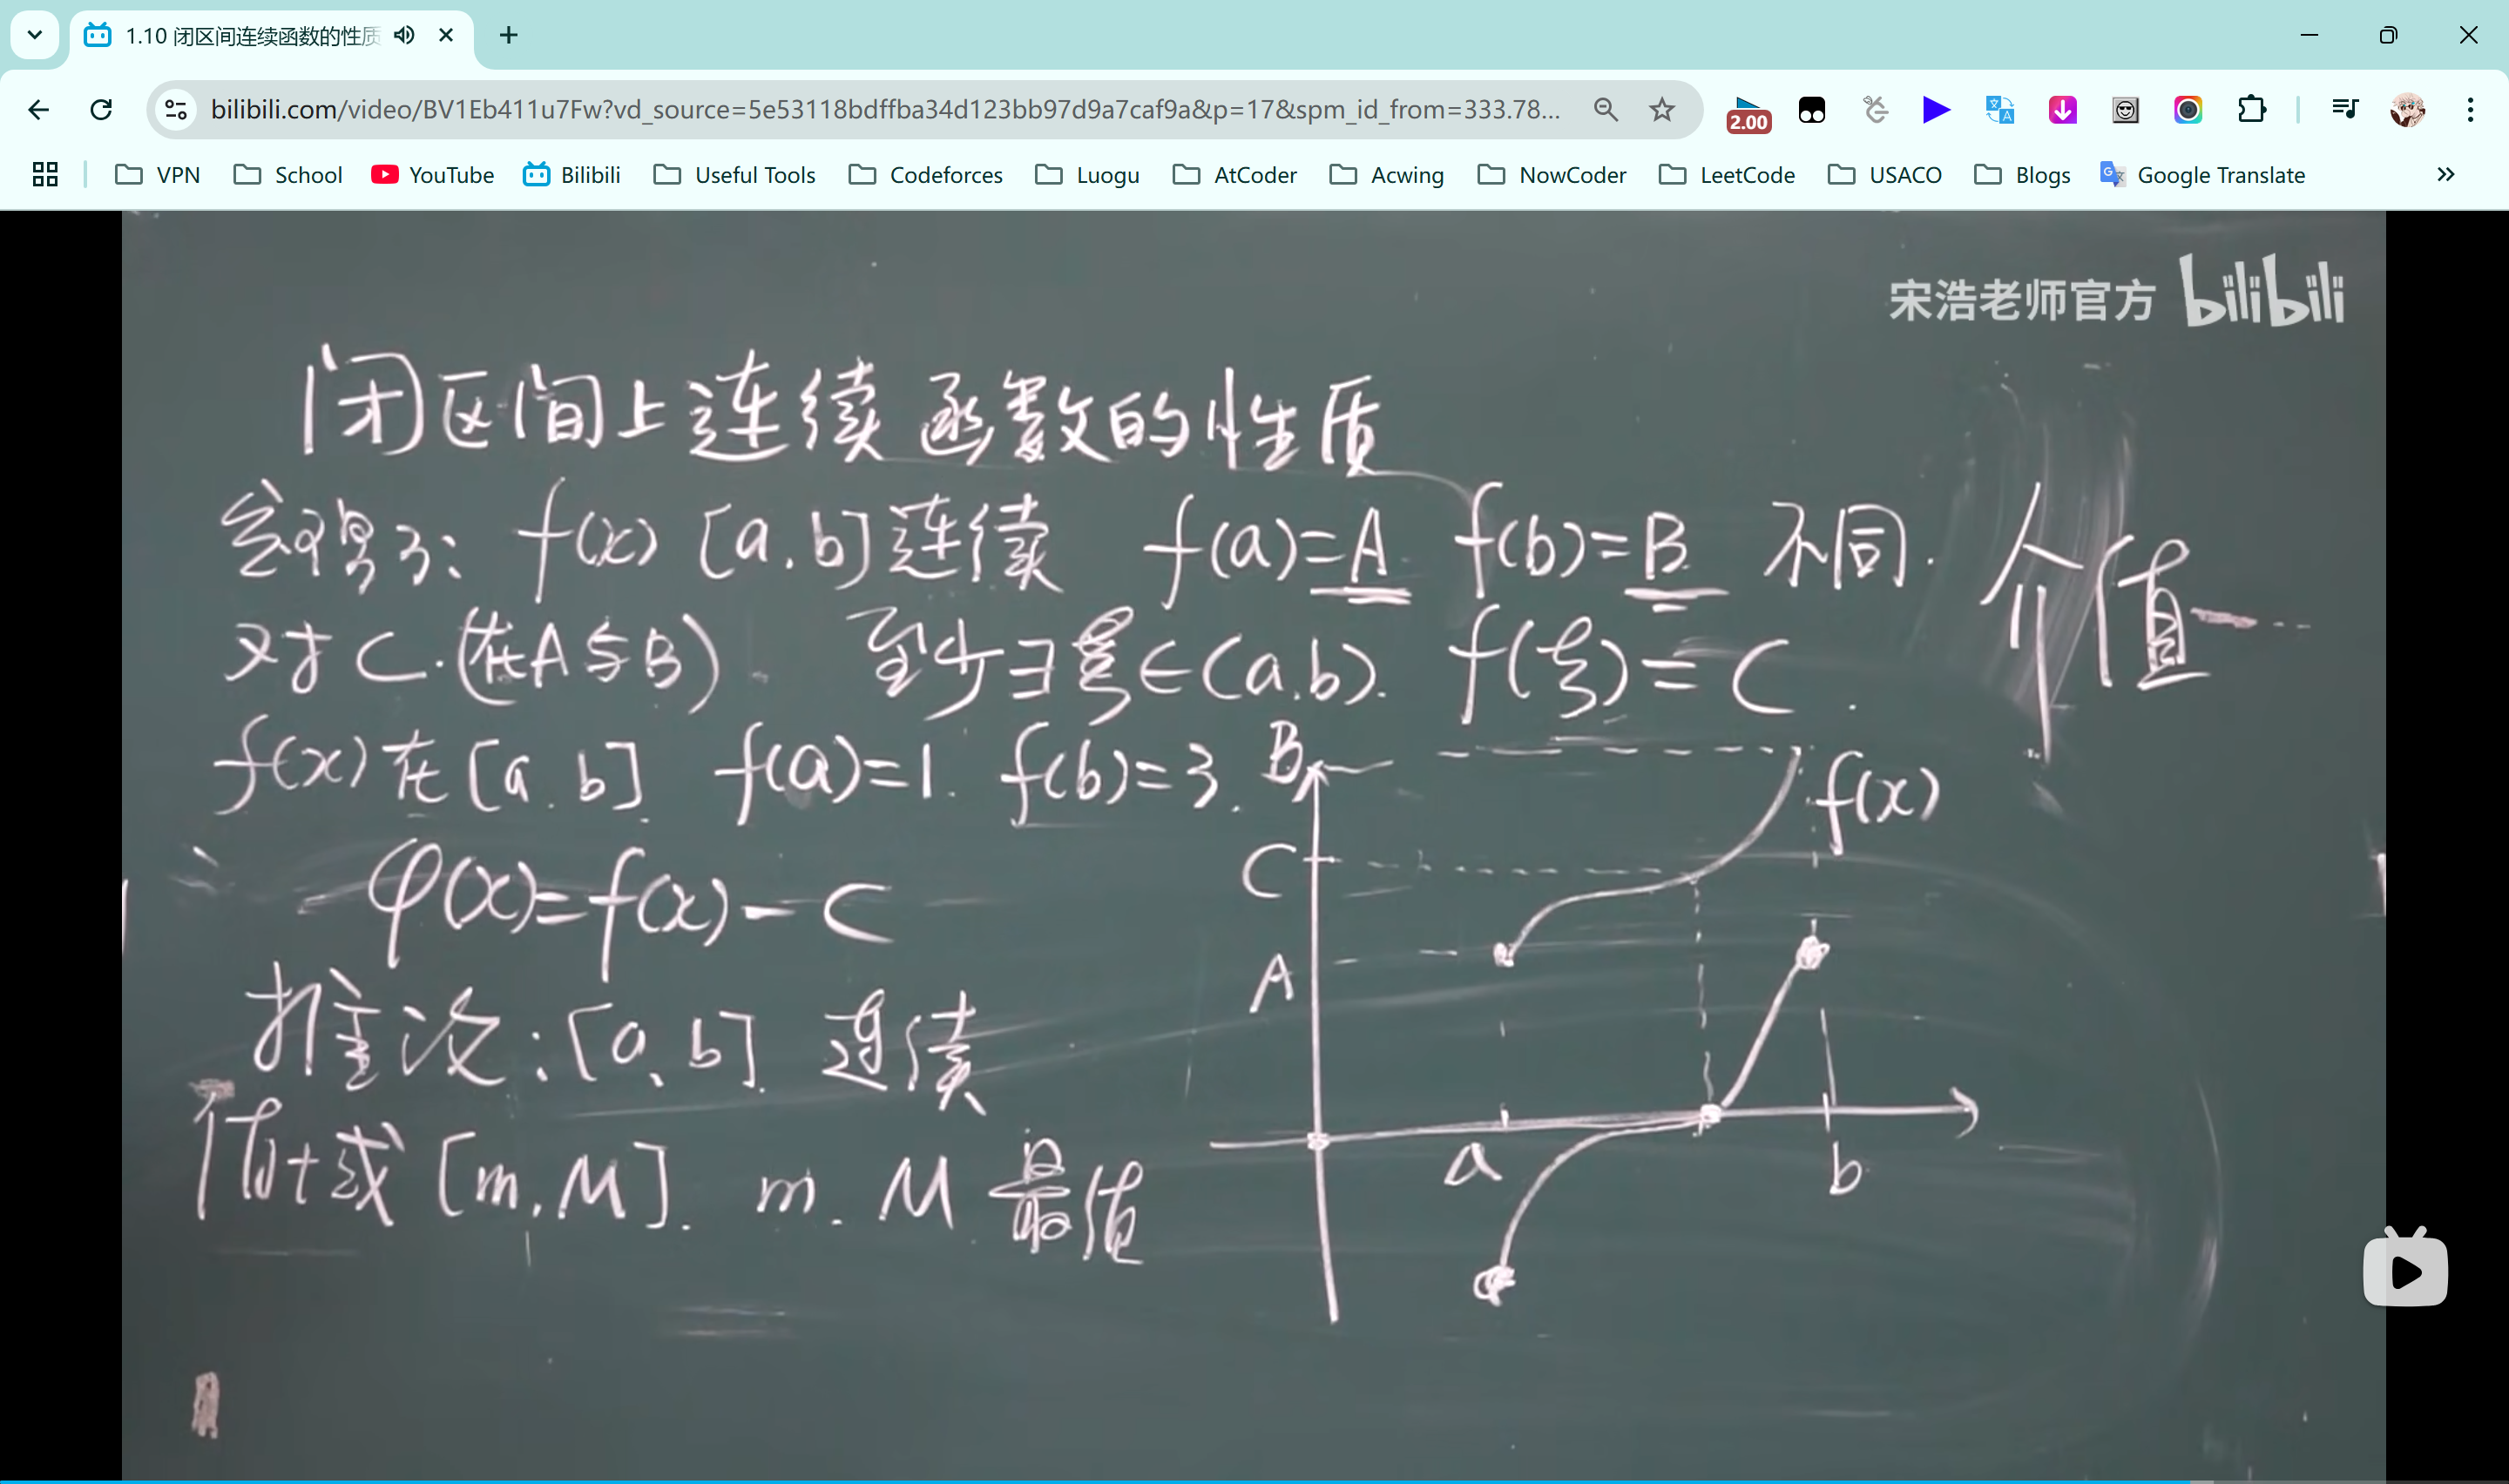 1.10 闭区间连续函数的性质
bilibili.com/video/BV1Eb411u7Fw?vd_source=5e53118bdffba34d123bb97d9a7caf9a&p=17&spm_id_from=333.78...
2.00
VPN School YouTube Bilibili Useful Tools Codeforces Luogu AtCoder Acwing NowCoder LeetCode USACO Blogs Google Translate
宋浩老师官方 bilibili
闭区间上连续函数的性质
f(x) [a,b]连续 f(a)=A f(b)=B 不同. 介值
对C.(在A与B) 至少∃ξ∈(a,b). f(ξ)=C.
f(x)在[a,b] f(a)=1. f(b)=3.
φ(x)=f(x)-C
推论:[a,b] 连续
值域[m,M]. m. M 最值
B
f(x)
C
A
a
b